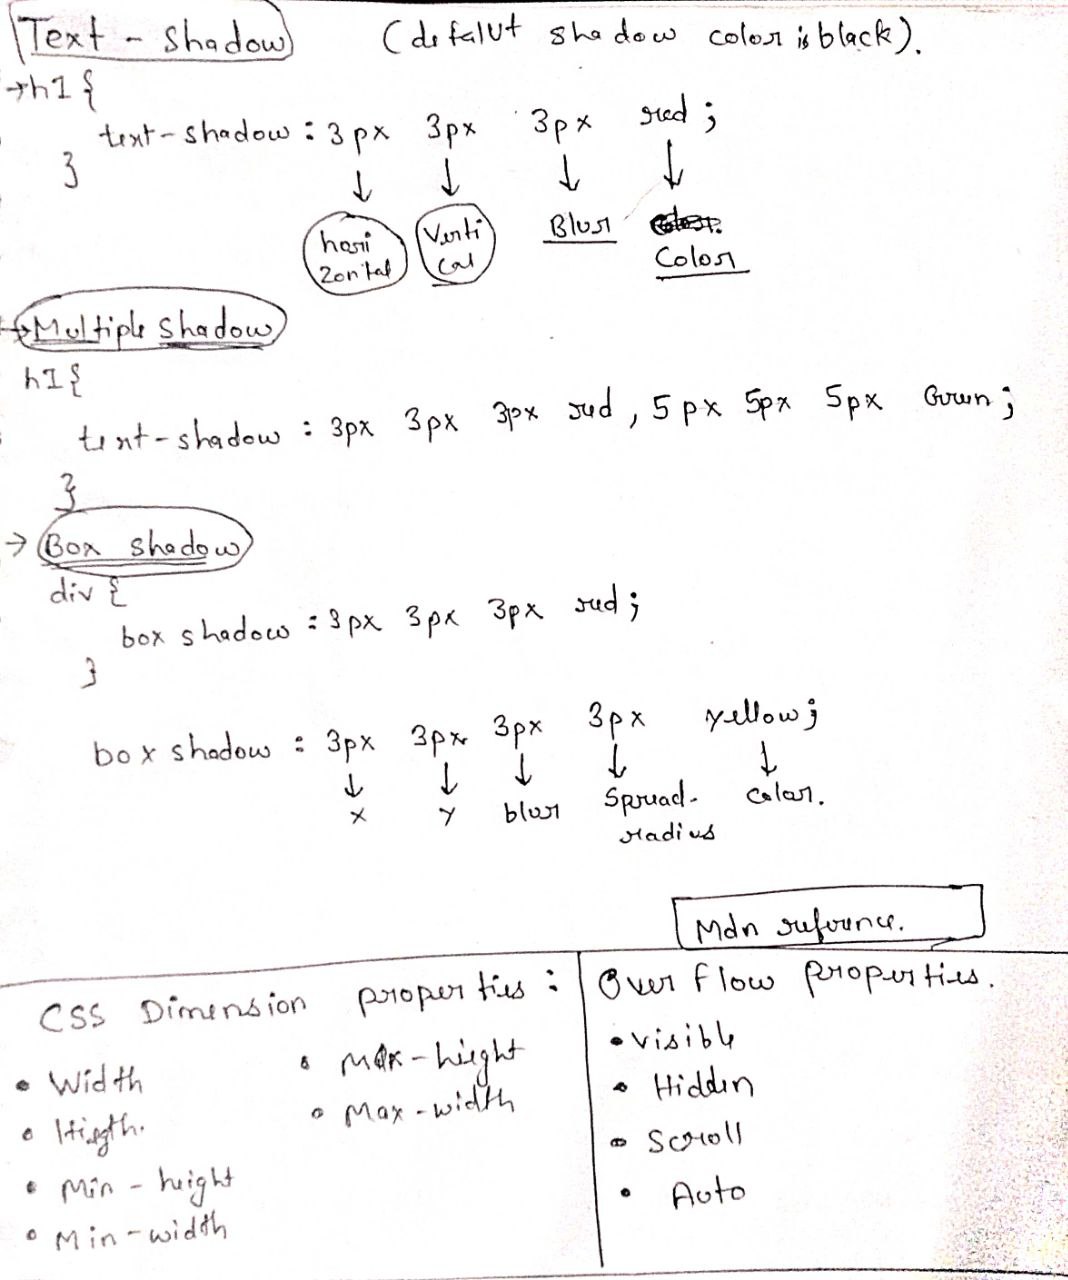 Text - Shadow (defalut shadow color is black).
→h1 {
text-shadow : 3px 3px 3px red ;
}
↓ ↓ ↓ ↓
hori Verti Blur Color
zontal cal
→Multiple shadow
h1 {
text-shadow : 3px 3px 3px red , 5px 5px 5px Green ;
}
→ Box shadow
div {
box shadow : 3px 3px 3px red ;
}
box shadow : 3px 3px 3px 3px yellow ;
↓ ↓ ↓ ↓ ↓
x y blur Spread- color.
radius
Mdn reference.
CSS Dimension properties :
• Width
• Higth.
• Min - height
• Min - width
• Max - hieght
• Max - width
Over flow properties.
• visible
• Hidden
• Scroll
• Auto